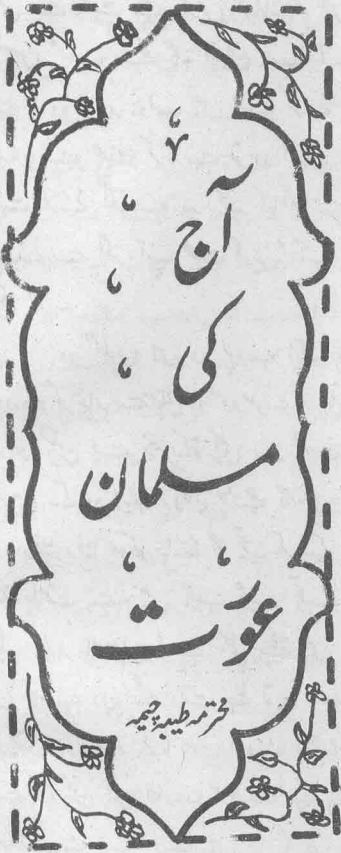 آج
کی
مسلمان
عورت
محترمہ طیبہ